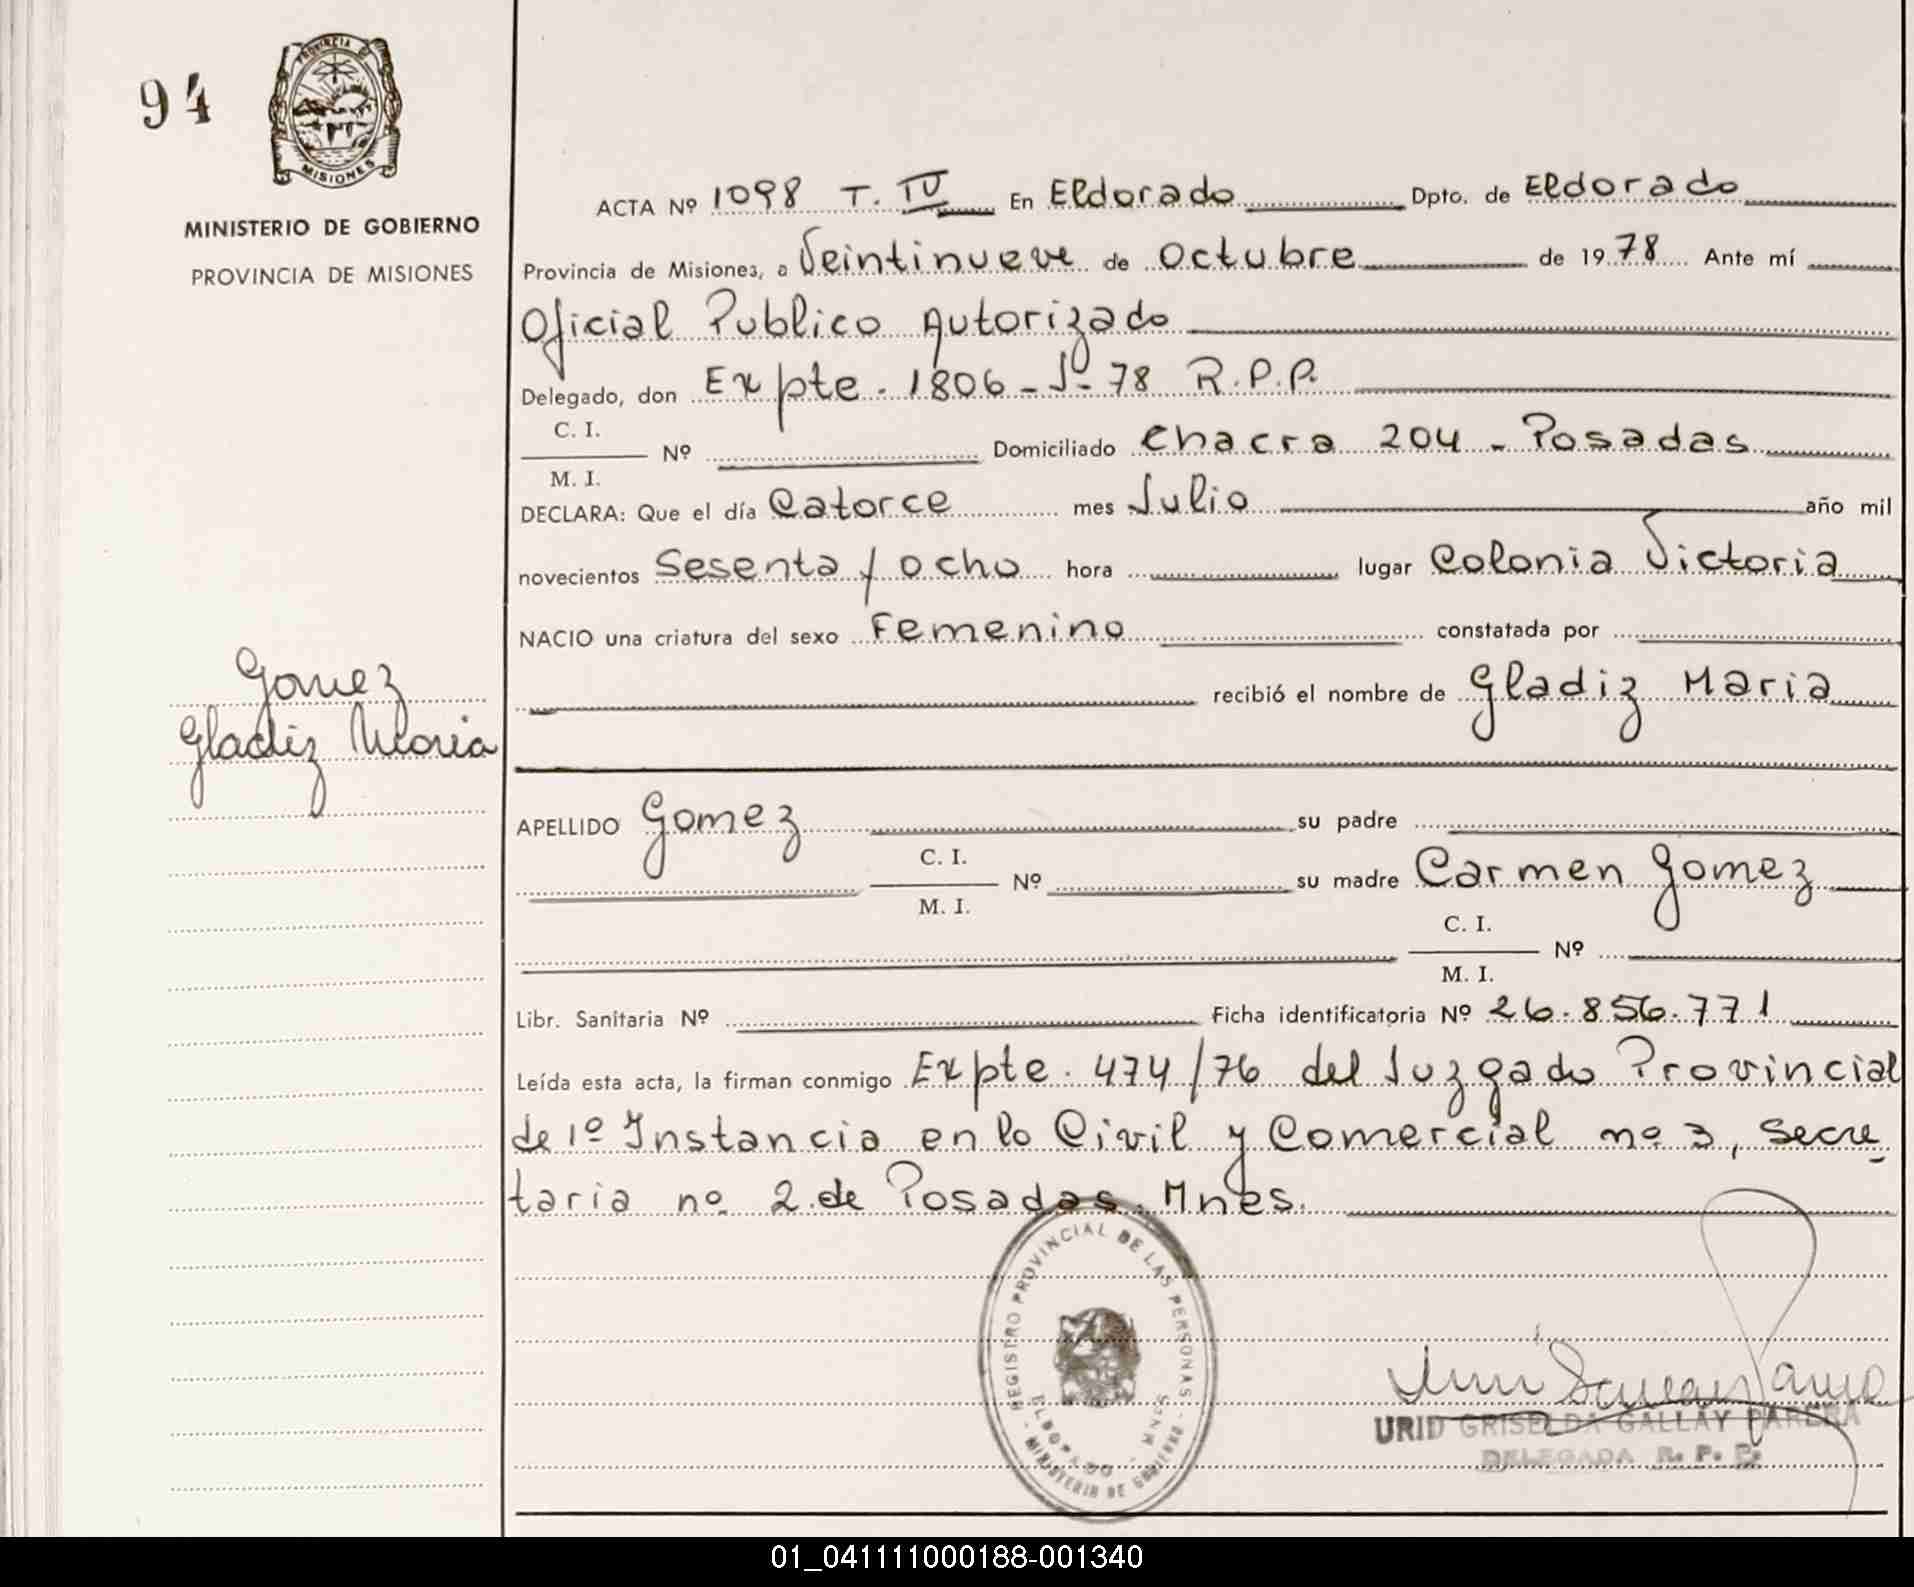 94
PROVINCIA DE
MISIONES
MINISTERIO DE GOBIERNO
PROVINCIA DE MISIONES
Gomez
Gladiz Maria
ACTA Nº 1098 T. IV En Eldorado Dpto. de Eldorado
Provincia de Misiones, a Veintinueve de Octubre de 1978 Ante mí
Oficial Publico Autorizado
Delegado, don Expte. 1806-Sº-78 R.P.P.
C. I.
M. I. Nº Domiciliado Chacra 204 - Posadas
DECLARA: Que el día Catorce mes Julio año mil
novecientos Sesenta y ocho hora lugar Colonia Victoria
NACIO una criatura del sexo Femenino constatada por
recibió el nombre de Gladiz Maria
APELLIDO Gomez su padre
C. I.
M. I. Nº su madre Carmen Gomez
C. I.
M. I. Nº
Libr. Sanitaria Nº Ficha identificatoria Nº 26.856.771
Leída esta acta, la firman conmigo Expte. 474/76 del Juzgado Provincial
de 1º Instancia en lo Civil y Comercial nº 3, Secre-
taria nº 2 de Posadas. Mnes.
REGISTRO PROVINCIAL DE LAS PERSONAS - MINISTERIO DE GOBIERNO -
ELDORADO
URID GRISELDA GALLAY PARERA
DELEGADA R. P. P.
01_041111000188-001340